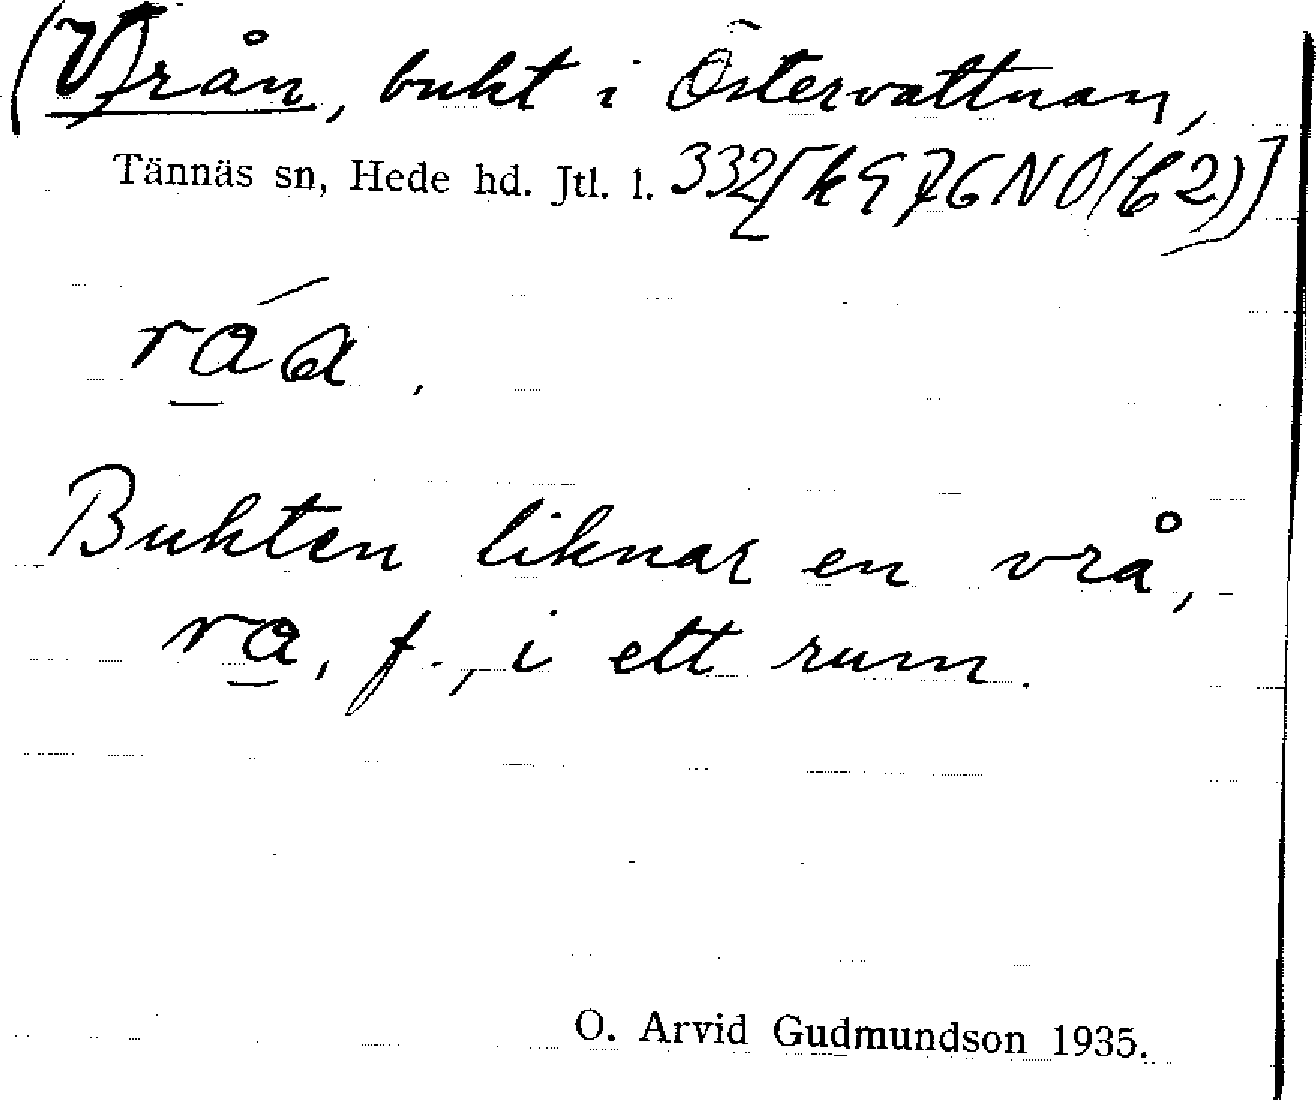 (V)rån, bukt i Östervattnan,
Tännäs sn, Hede hd. Jtl. l. 332[k976NO(62)]
Bukten liknar en vrå,
ra, f., i ett rum.
O. Arvid Gudmundson 1935.